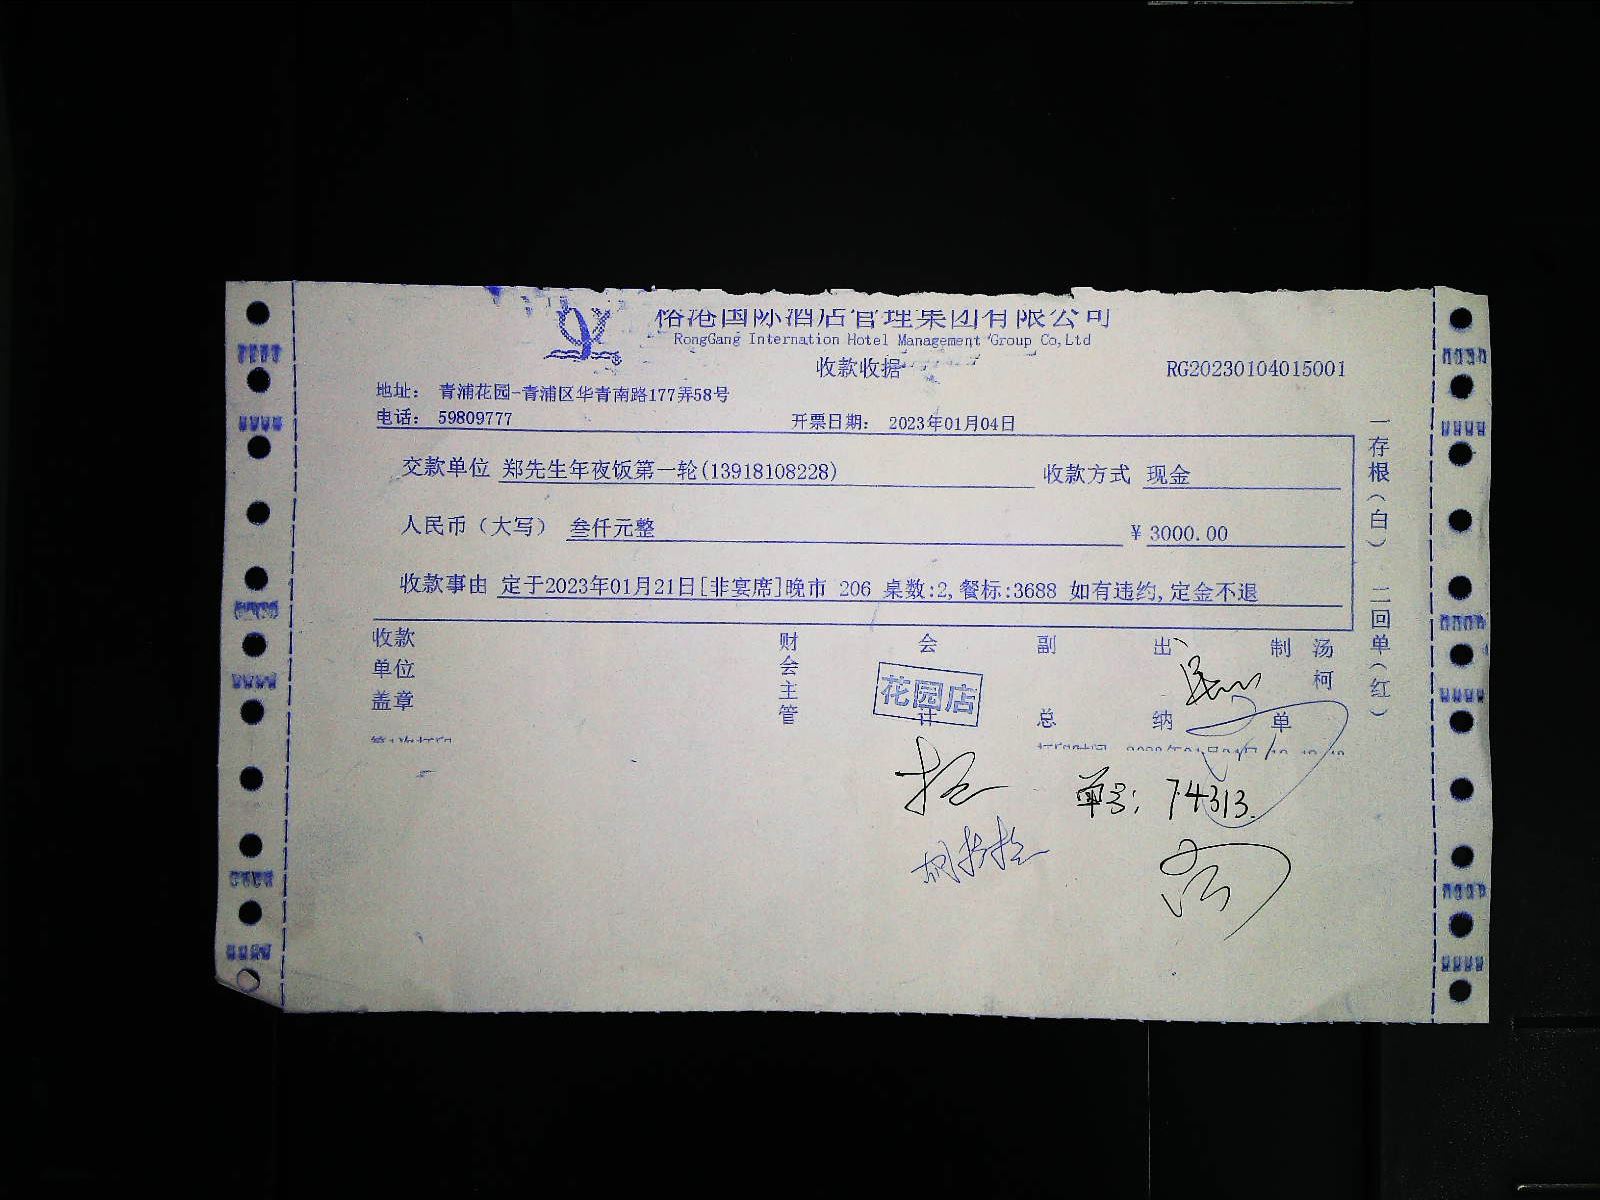 国际酒店管理集团有限公司
RongGang Internation Hotel Management Group Co,Ltd
收款收据
RG20230104015001
地址： 青浦花园-青浦区华青南路177弄58号
电话： 59809777
开票日期： 2023年01月04日
交款单位 郑先生年夜饭第一轮(13918108228) 收款方式 现金
人民币（大写） 叁仟元整 ￥3000.00
收款事由 定于2023年01月21日[非宴席]晚市 206 桌数:2,餐标:3688 如有违约,定金不退
一存根（白） 二回单（红）
收款单位盖章
财会主管
会计
副总
出纳
制单
汤柯
花园店
单号: 74313.